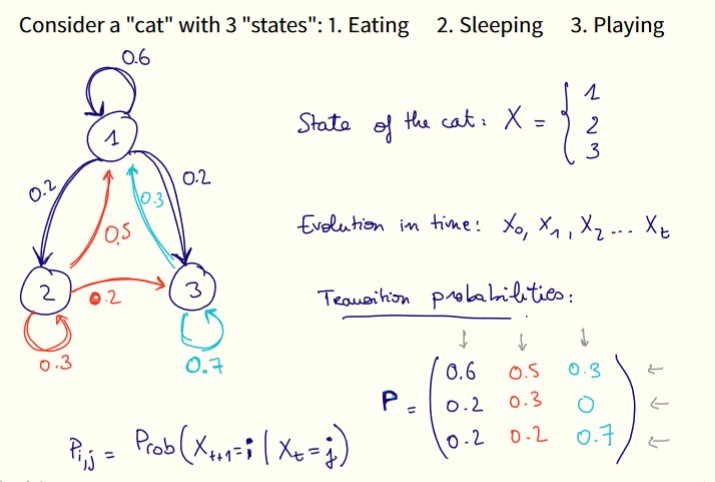 Consider a "cat" with 3 "states": 1. Eating 2. Sleeping 3. Playing
0.6
1
State of the cat: X = { 1
2
3
0.2
0.2
0.3
0.5
Evolution in time: X₀, X₁, X₂ ... Xₜ
2
0.2
3
Transition probabilities:
0.3
0.7
↓ ↓ ↓
P = ( 0.6 0.5 0.3 ) ←
0.2 0.3 0 ←
0.2 0.2 0.7 ←
Pᵢ,ⱼ = Prob(Xₜ₊₁=i | Xₜ=j)